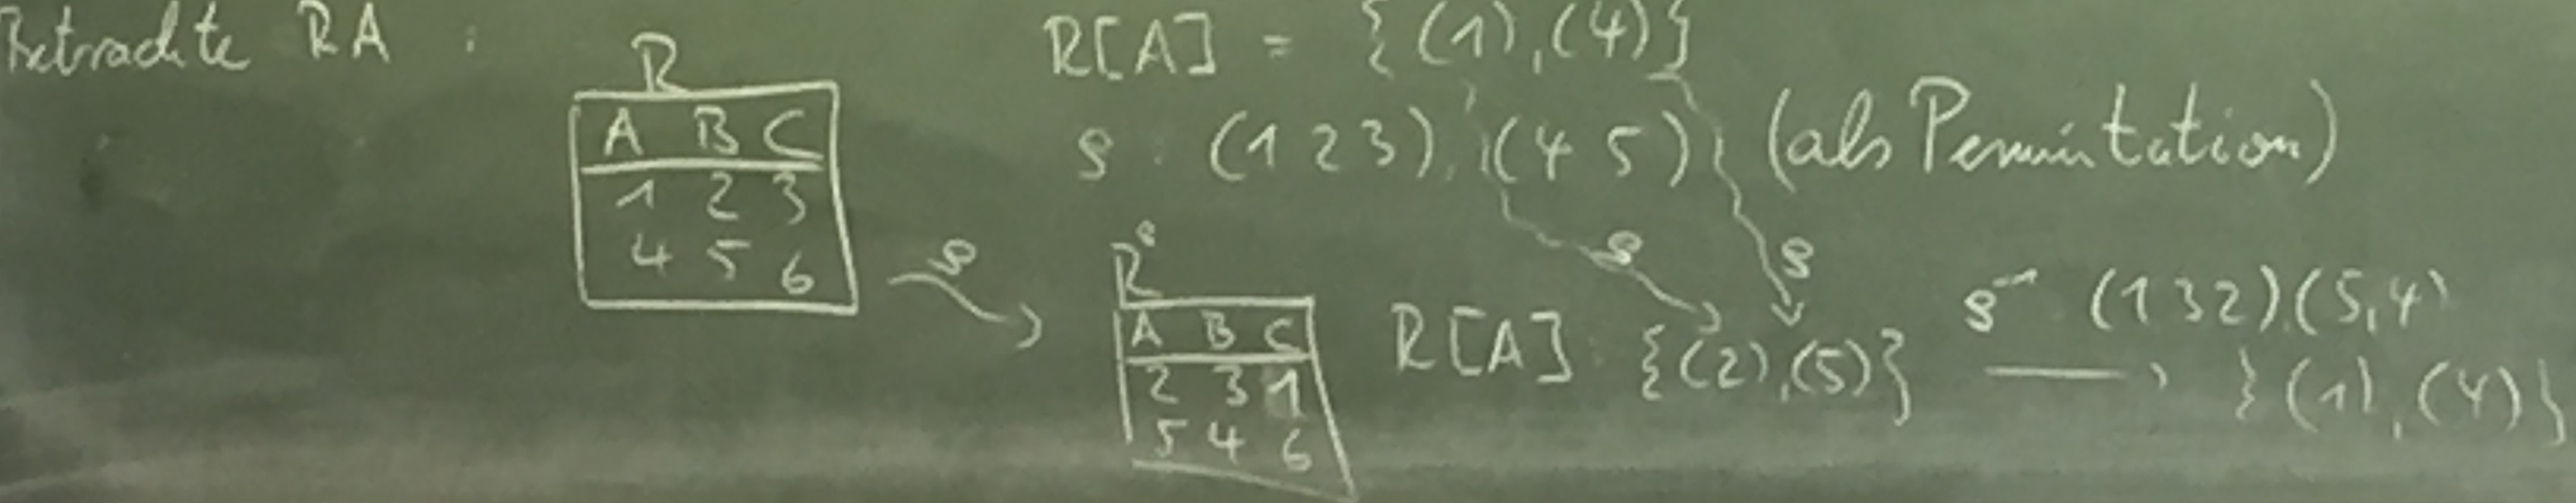 Betrachte RA :
R[A] = {(1),(4)}
R
A B C
1 2 3
4 5 6
ρ : (1 2 3), (4 5) (als Permutation)
ρ
R^ρ
A B C
2 3 1
5 4 6
ρ ρ
R[A] : {(2),(5)}
ρ⁻¹ (1 3 2)(5,4)
{(1),(4)}